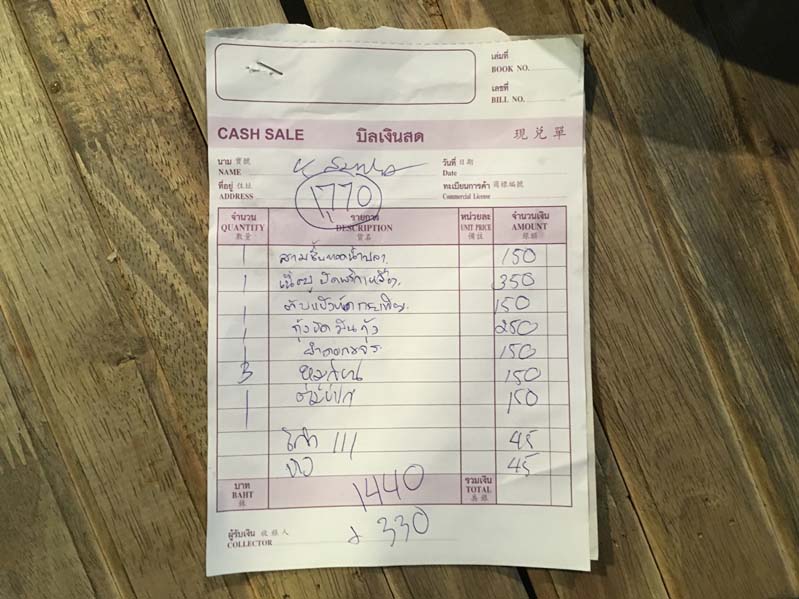 เล่มที่
BOOK NO.
เลขที่
BILL NO.
CASH SALE บิลเงินสด 現兌單
นาม 寶號
NAME
วันที่ 日期
Date
ที่อยู่ 住址
ADDRESS
1,770
ทะเบียนการค้า 商標編號
Commercial License
จำนวน รายการ หน่วยละ จำนวนเงิน
QUANTITY DESCRIPTION UNIT PRICE AMOUNT
數量 貨名 備註 銀額
1 สามชั้นทอดน้ำปลา 150
1 เนื้อปู ผัดพริกเหลือง 350
1 150
1 กุ้งผัดมันกุ้ง 250
1 ยำดอกขจร 150
3 150
1 150
โค้ก 111 45
45
บาท
BAHT
銖
1440
รวมเงิน
TOTAL
共銀
ผู้รับเงิน 收銀人
COLLECTOR
330